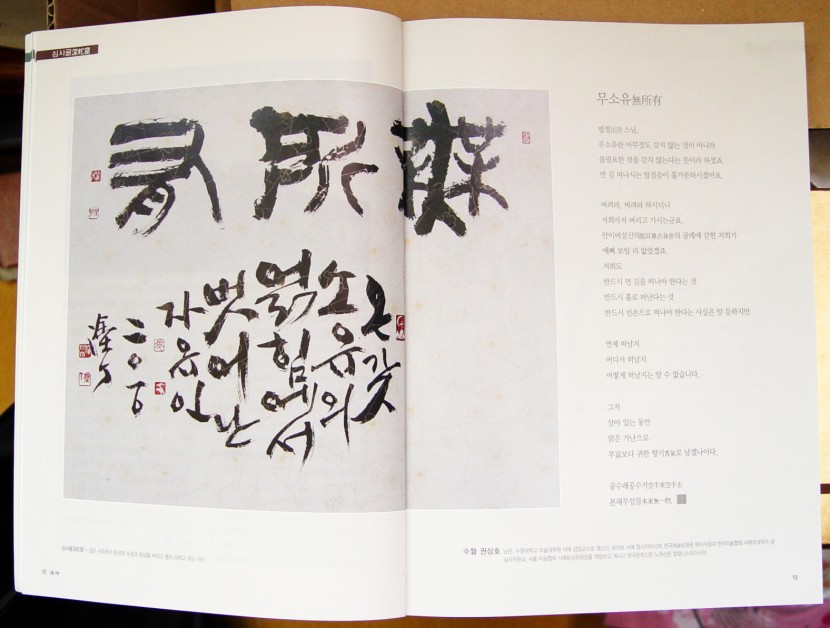 심사굴深蛇窟
無所有
온갖
소유의
얽힘에서
벗어난
자유인
무소유無所有
법정法頂 스님,
무소유란 아무것도 갖지 않는 것이 아니라
불필요한 것을 갖지 않는다는 뜻이라 하셨죠.
먼 길 떠나시는 발걸음이 홀가분하시겠어요.
버려라, 버려라 하시더니
저희까지 버리고 가시는군요.
안이비설신의眼耳鼻舌身意의 굴레에 갇힌 저희가
예뻐 보일 리 없었겠죠.
저희도
반드시 먼 길을 떠나야 한다는 것
반드시 홀로 떠난다는 것
반드시 빈손으로 떠나야 한다는 사실은 알 듯하지만
언제 떠날지
어디서 떠날지
어떻게 떠날지는 알 수 없습니다.
그저
살아 있는 동안
맑은 가난으로
부富보다 귀한 향기香氣로 남겠나이다.
공수래공수거空手來空手去
본래무일물本來無一物.
심사굴深蛇窟
수월 권상호
19